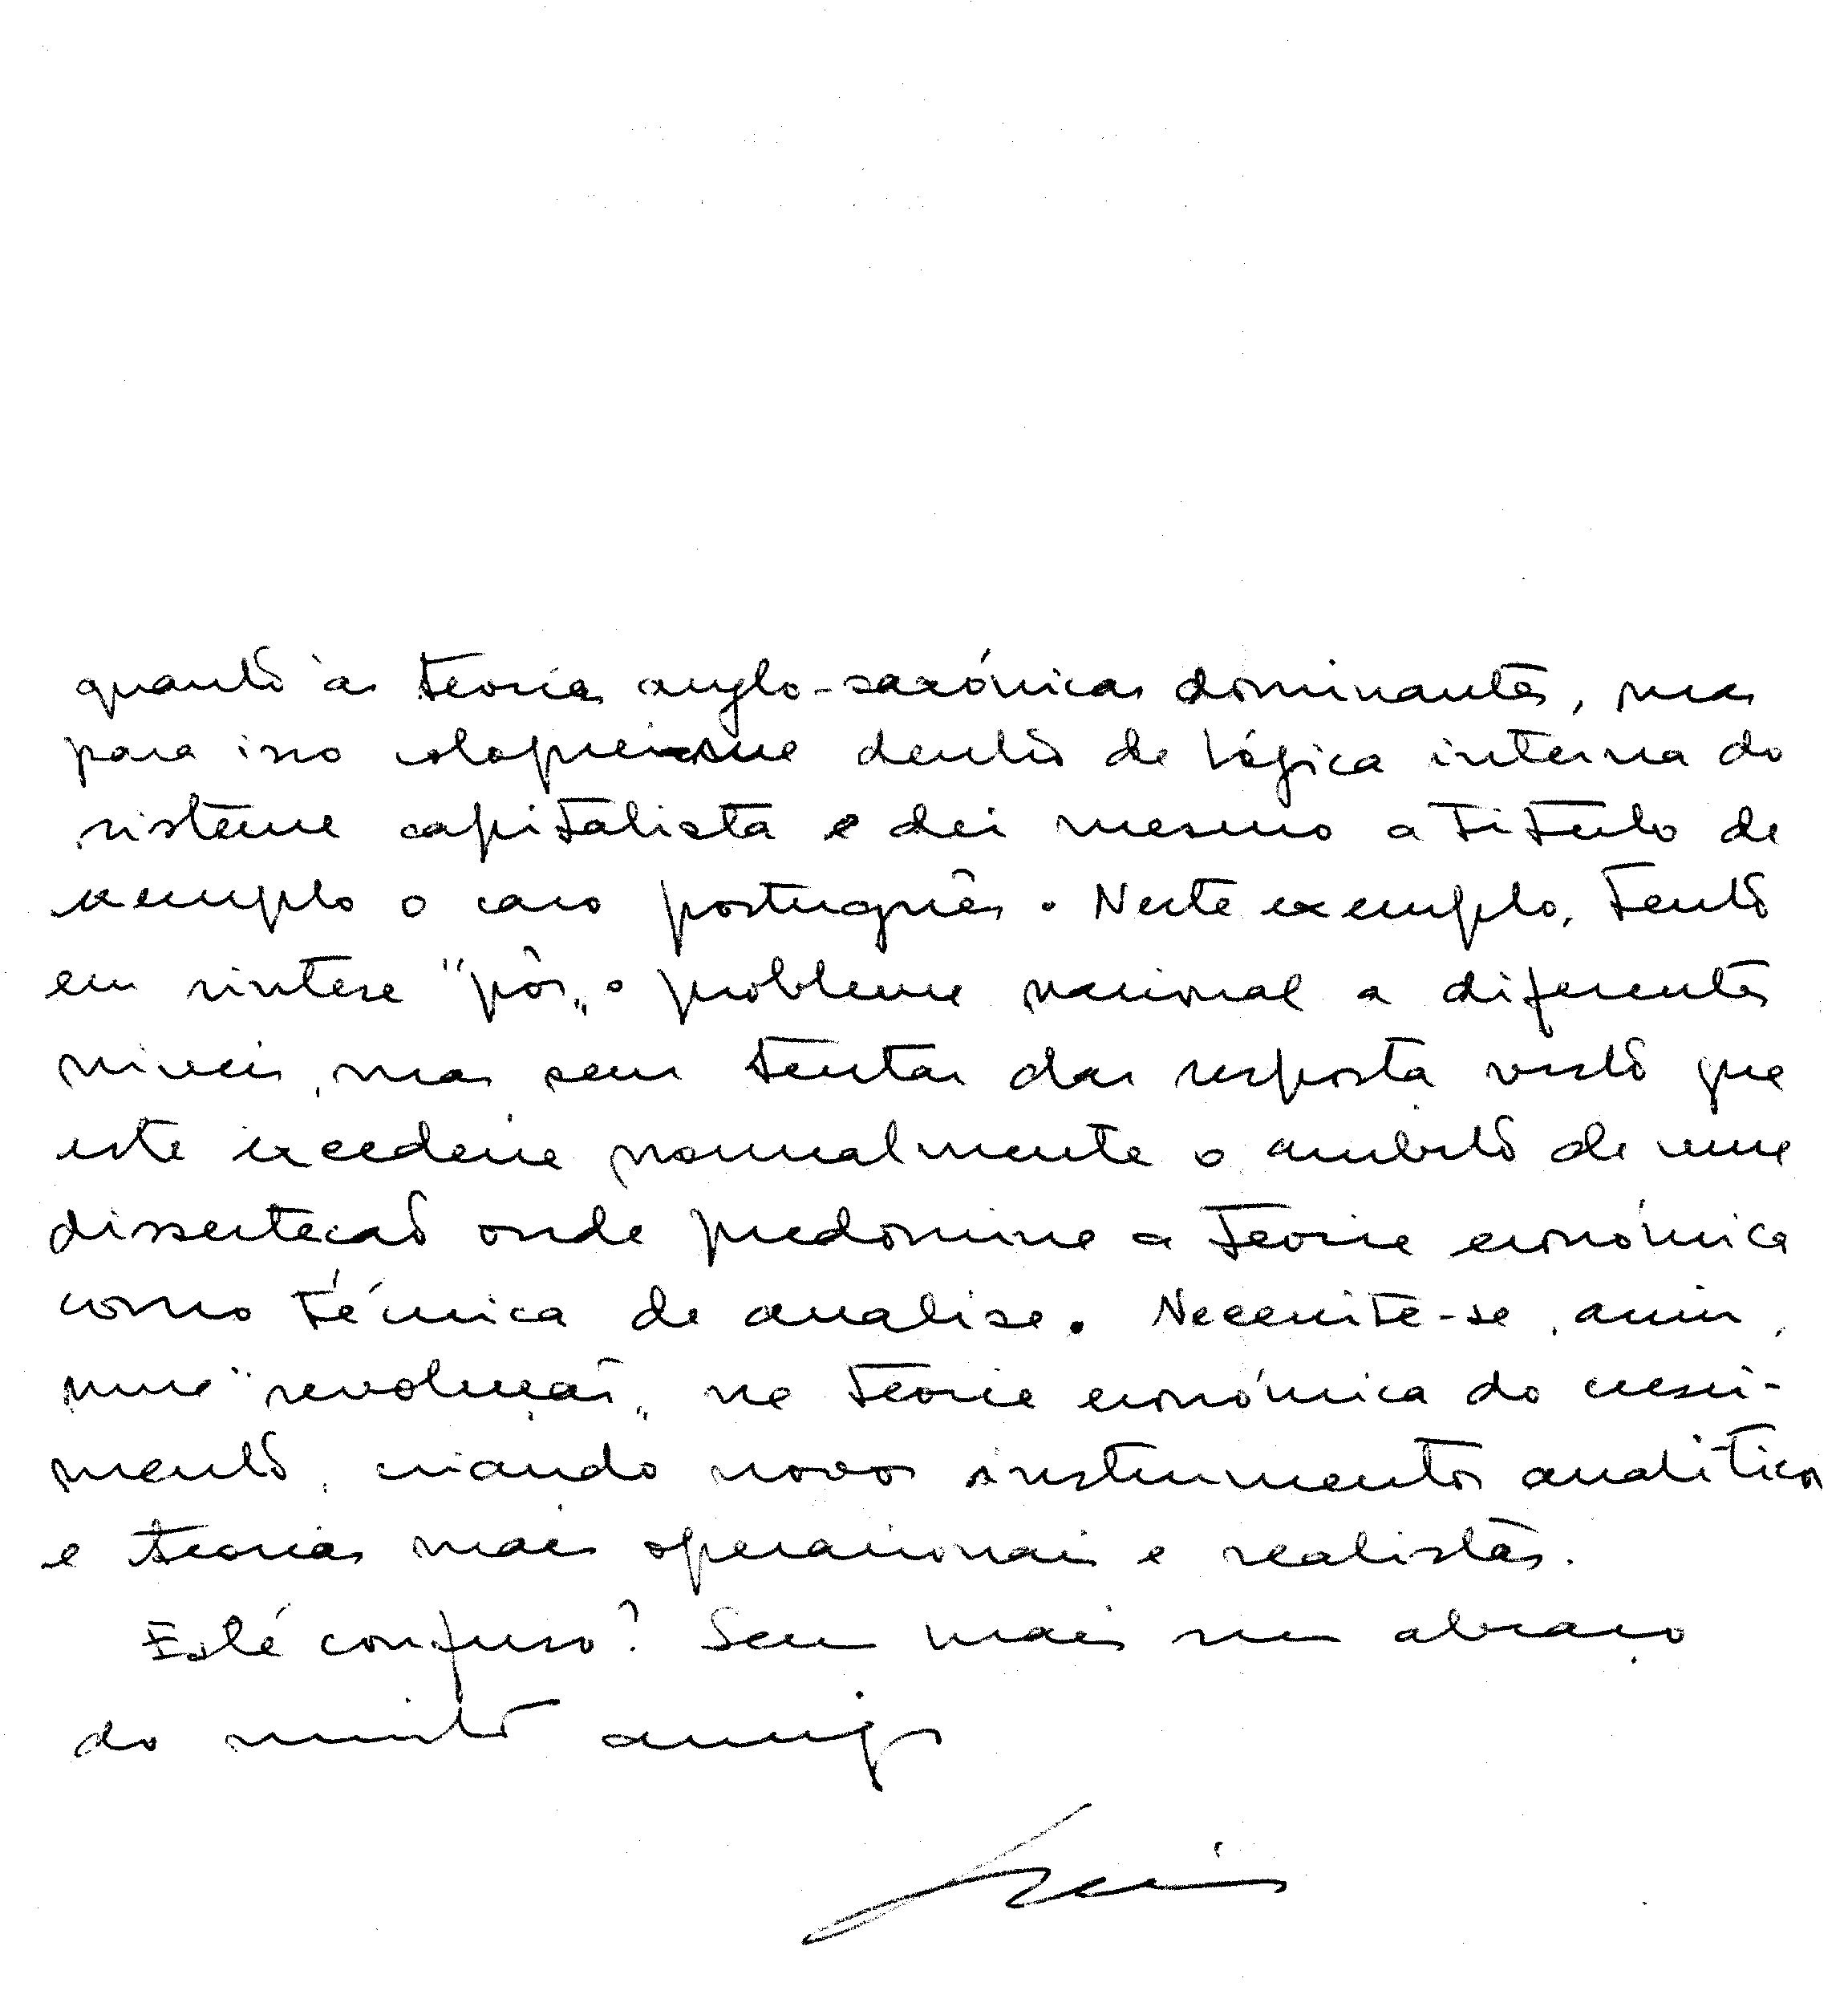 quanto às teorias anglo-saxónicas dominantes, mas
para isso coloquei-me dentro da lógica interna do
sistema capitalista e dei mesmo a título de
exemplo o caso português. Neste exemplo, tento
em sintese "pôr" o problema nacional a diferentes
niveis, mas sem tentar dar resposta visto que
este excederia normalmente o ambito de uma
dissertação onde predomina a teoria económica
como técnica de analise. Necessita-se, assim,
uma "revolução" na teoria económica do cresci-
mento, criando novos instrumentos analíticos
e teorias mais operacionais e realistas.
Está confuso? Sem mais um abraço
do muito amigo